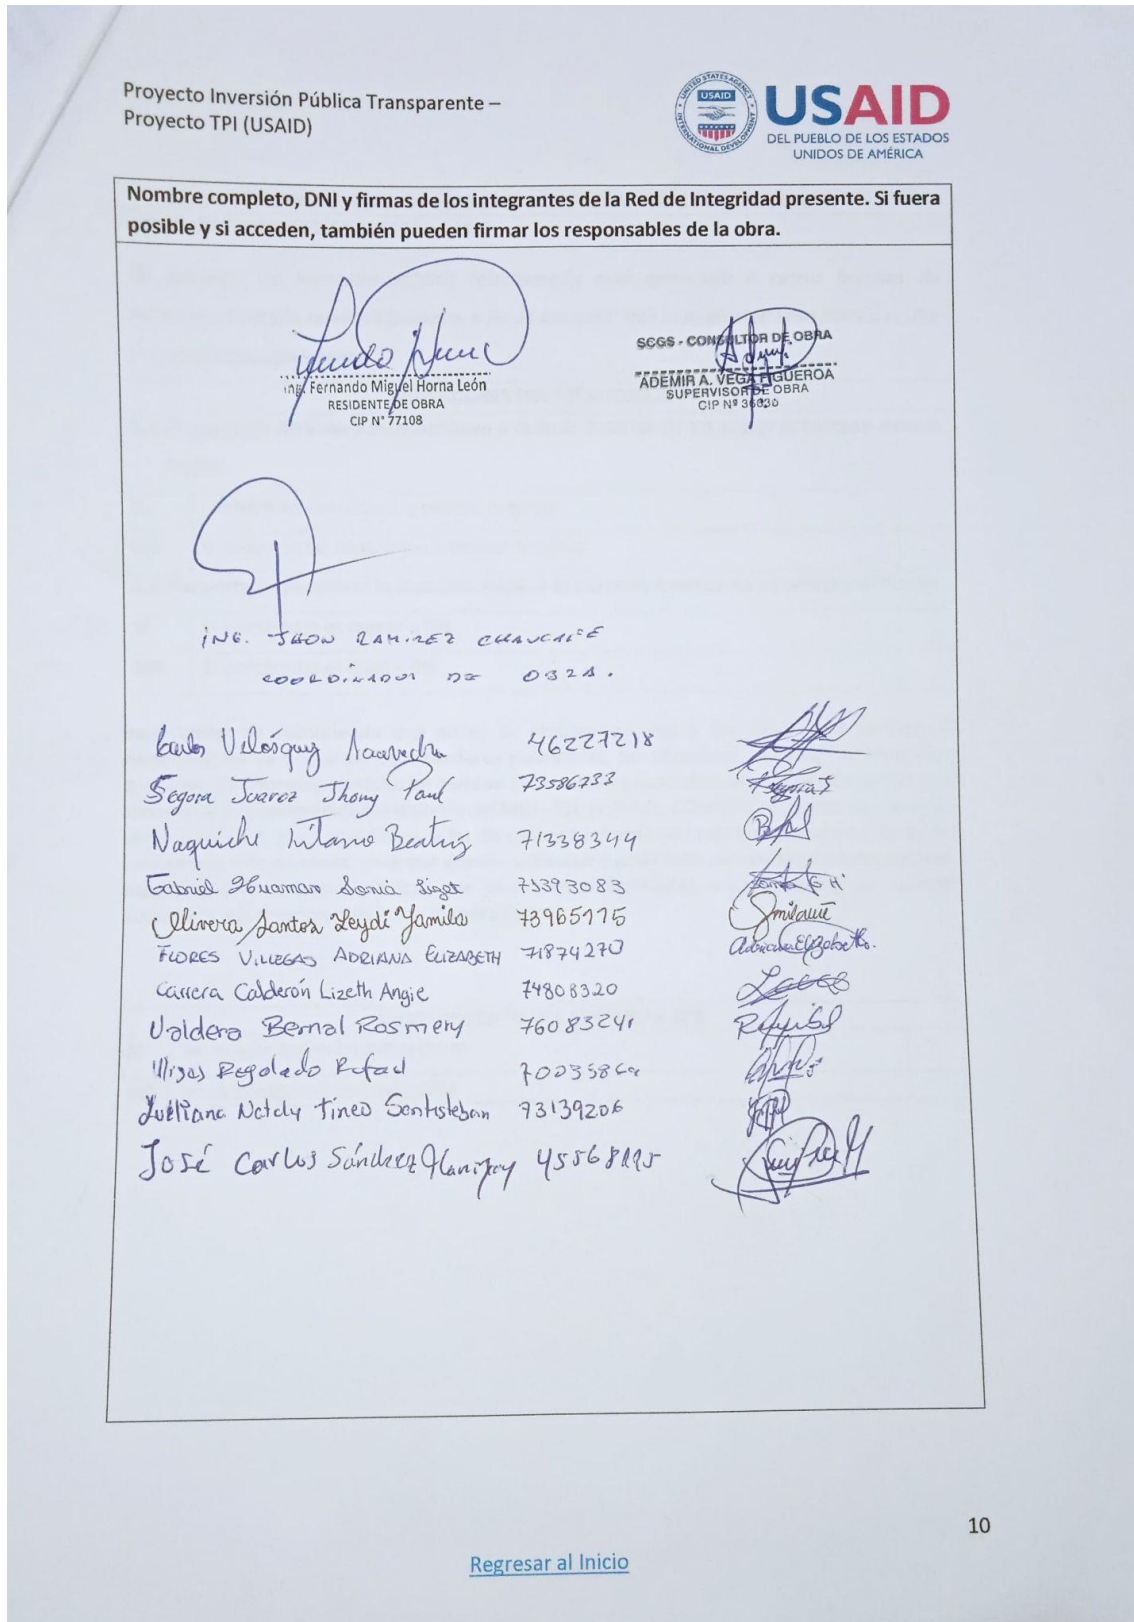 Proyecto Inversión Pública Transparente –
Proyecto TPI (USAID)
UNITED STATES AGENCY
USAID
INTERNATIONAL DEVELOPMENT
USAID
DEL PUEBLO DE LOS ESTADOS
UNIDOS DE AMÉRICA
Nombre completo, DNI y firmas de los integrantes de la Red de Integridad presente. Si fuera
posible y si acceden, también pueden firmar los responsables de la obra.
Ing. Fernando Miguel Horna León
RESIDENTE DE OBRA
CIP N° 77108
SCGS - CONSULTOR DE OBRA
ADEMIR A. VEGA FIGUEROA
SUPERVISOR DE OBRA
CIP Nº 36830
ING. JHON RAMIREZ
COORDINADOR DE OBRA.
Velásquez Saavedra 46227218
Segora Juarez Jhony Paul 73586233
Naquiche Beatriz 71338344
Gabriel Huaman Sonia Lizet 73393083
Olivera Santos Leydi Yamila 73965175
FLORES VILLEGAS ADRIANA ELIZABETH 71874270
Carrera Calderón Lizeth Angie 74808320
Valdera Bernal Rosmery 76083241
Regalado Rafael
Nataly Tineo Santisteban 73139206
José Carlos Sánchez
10
Regresar al Inicio